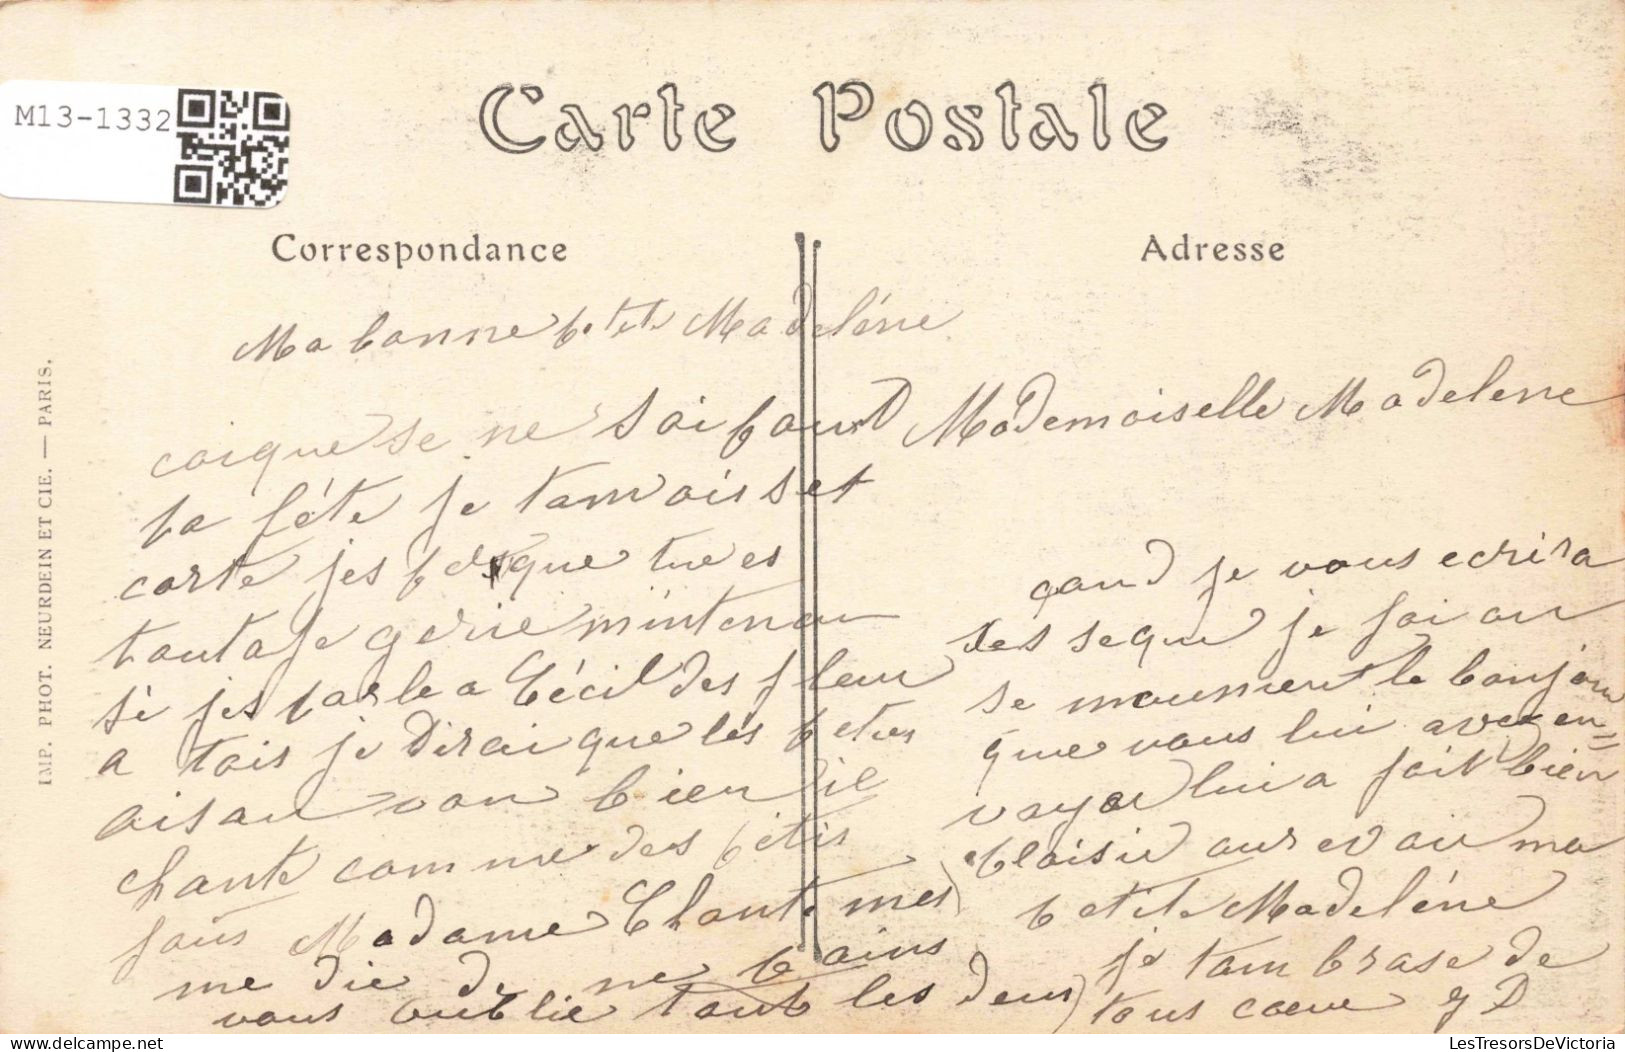 M13-1332
Carte Postale
Correspondance
Adresse
IMP. PHOT. NEURDEIN ET CIE. — PARIS.
Ma bonne petite Madeléne
coique se ne soi pouint
ta féte je tanvois set
carte jes que tu es
tout a fe gerie mintenan
si jes parle a Cécil des fleur
a tois je dirai que lés peties
oisau von bien il
chante comme des petis
fous Madame Chant mes
me die de ne pains
vous oublie tout les deus
Mademoiselle Madelene
cand je vous ecrira
ses se que je fai on
se moument le bonjour
que vous lui avez en=
voyer lui a fait bien
plaisir aurevoir ma
petite Madeléne
je tambrase de
tous cœur g D
LesTresorsDeVictoria
delcampe.net